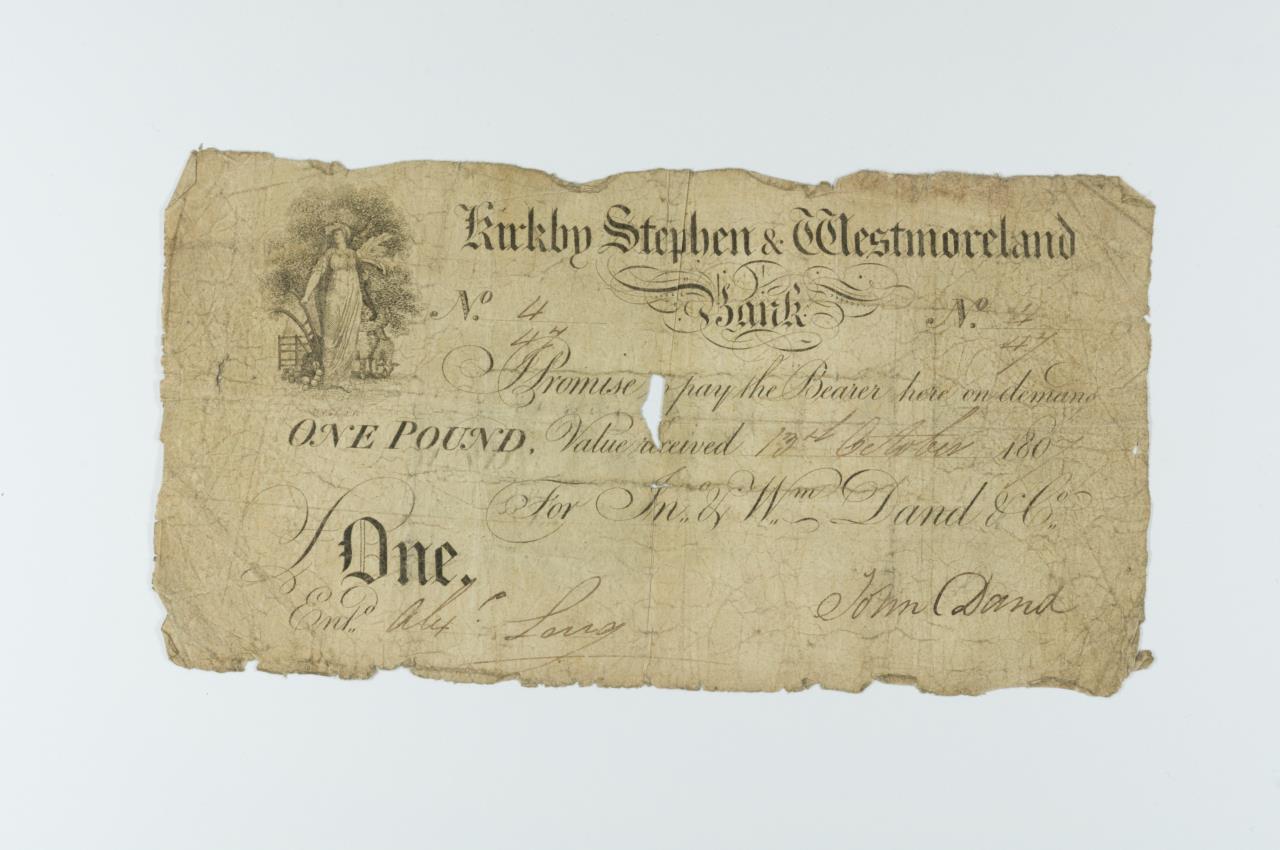 Kirkby Stephen & Westmoreland
Bank
No. 4 No. 4
47 47
I Promise to pay the Bearer here on demand
ONE POUND. Value received 13th October 1807
For Jno. & Wm. Dand & Co.
£ One.
Entd. Alexr. Long John Dand